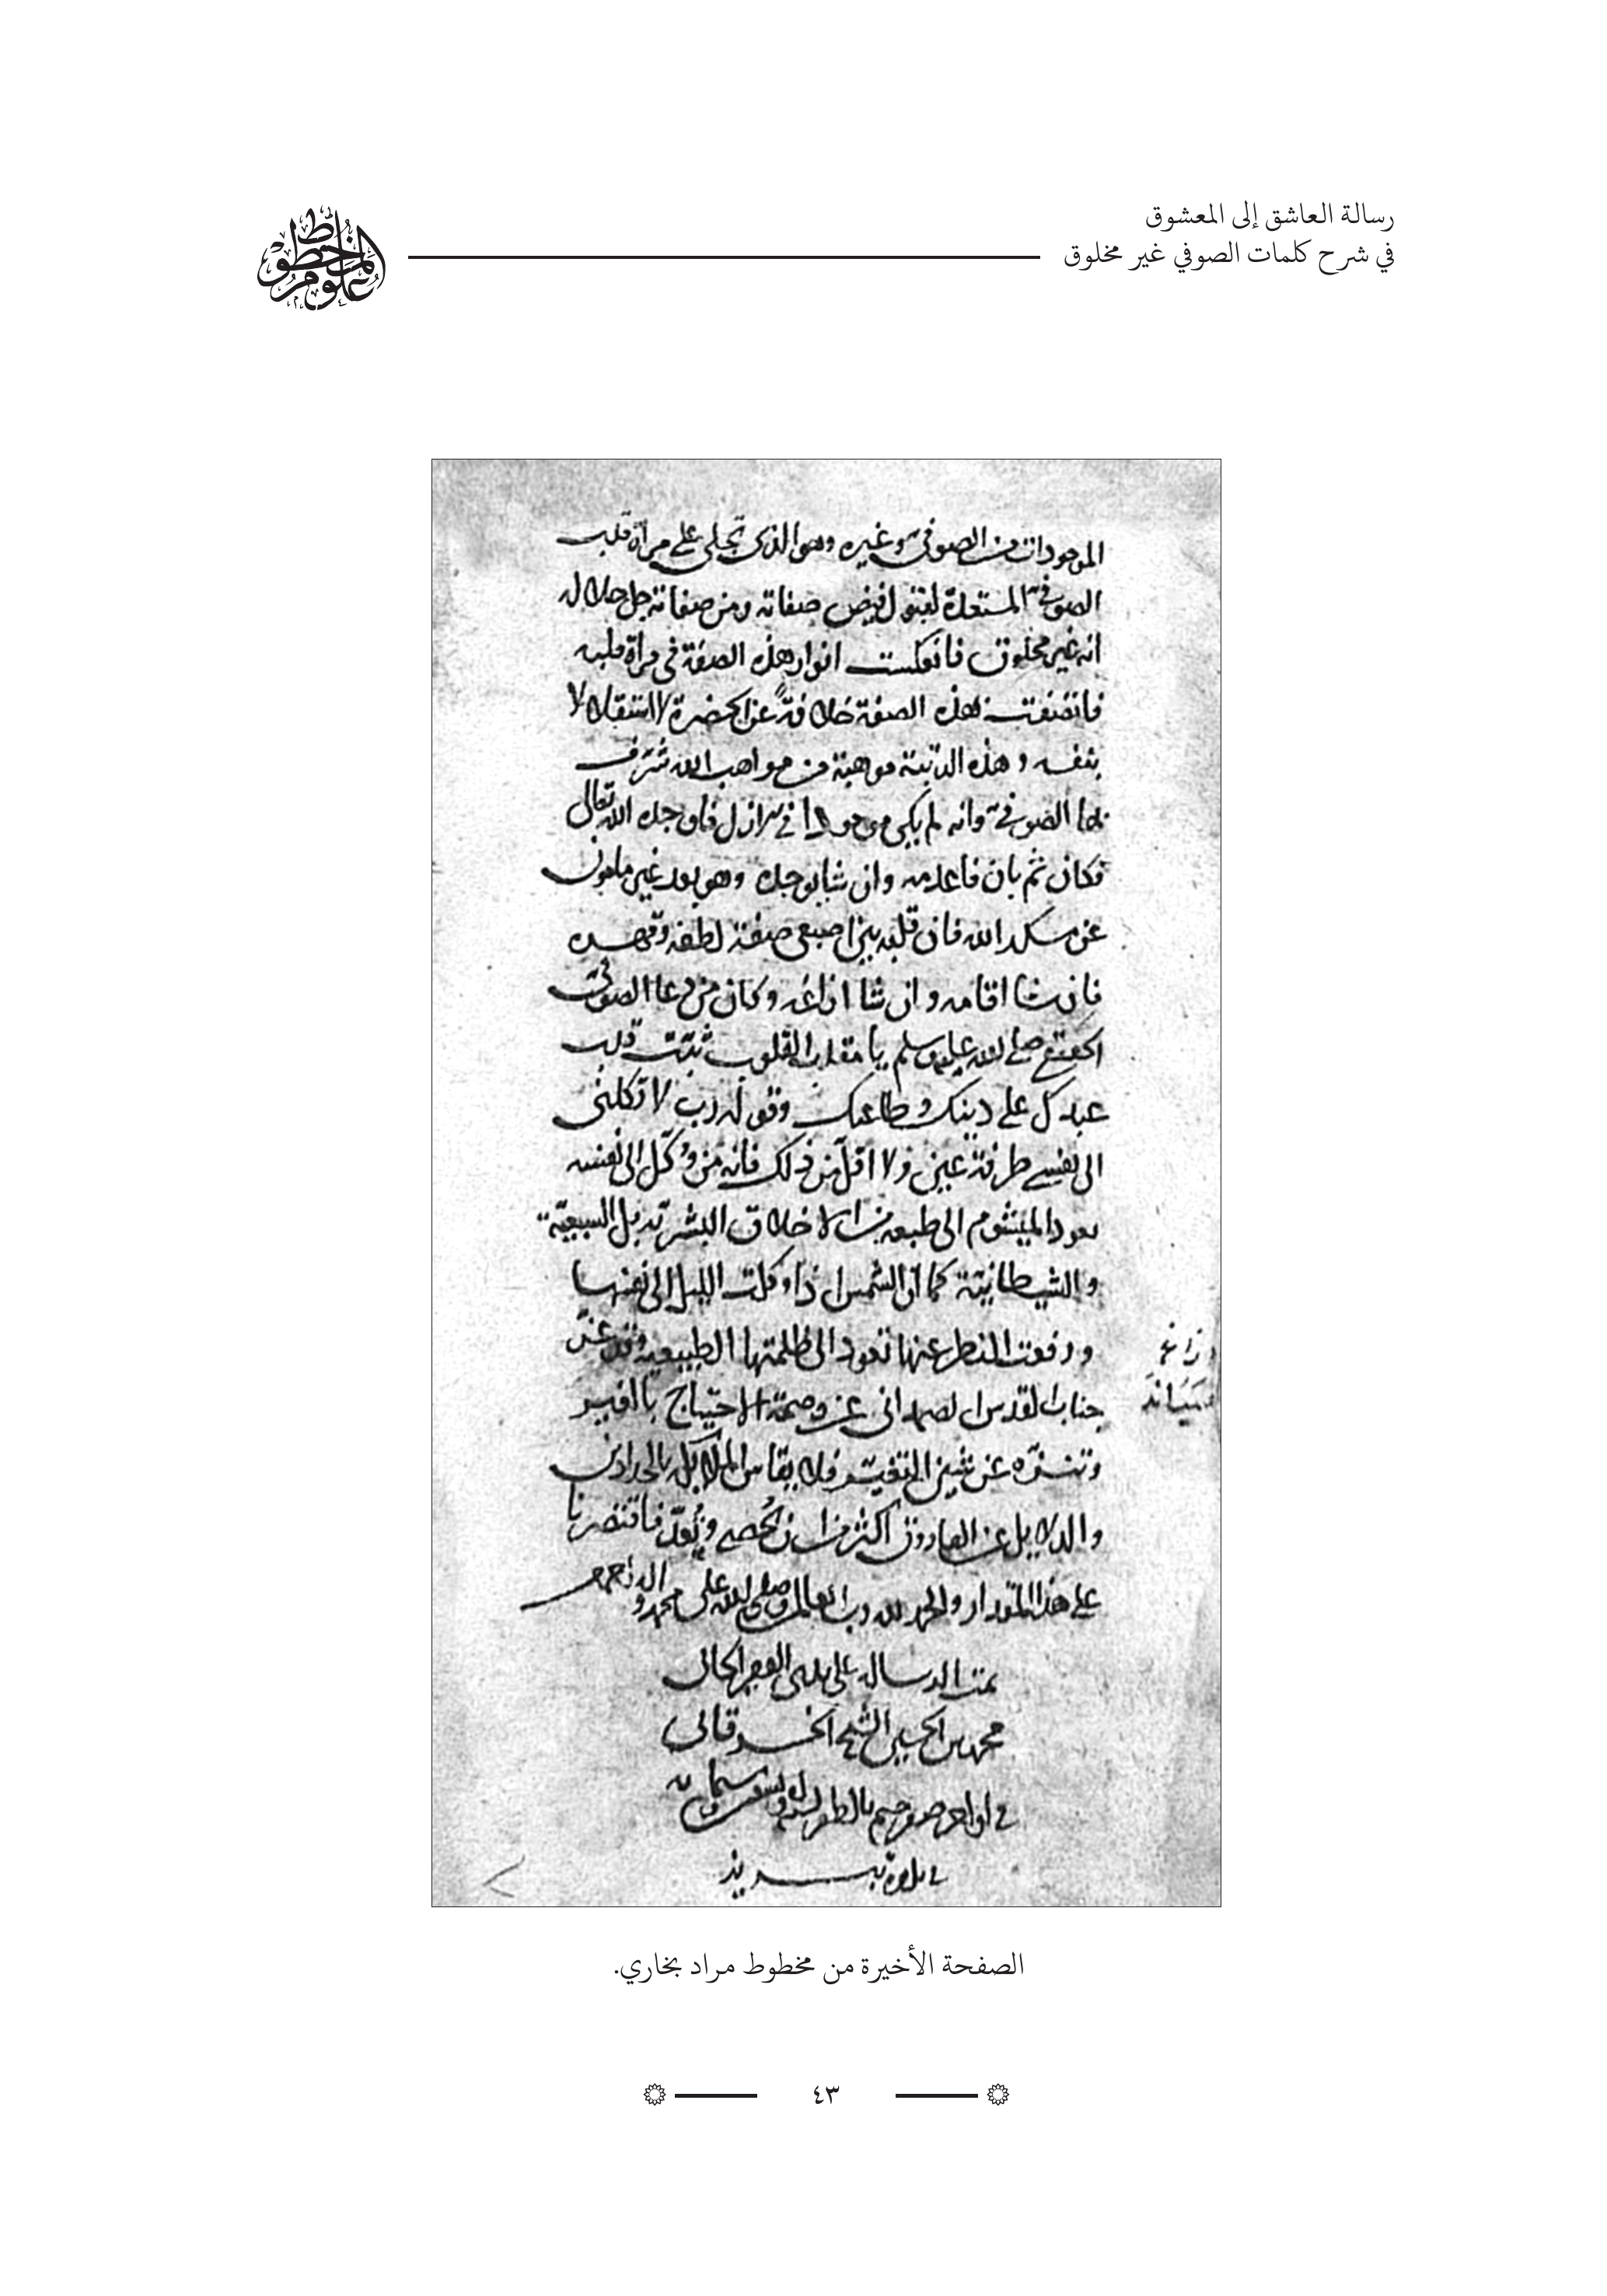 رسالة العاشق إلى المعشوق
في شرح كلمات الصوفي غير مخلوق
علوم المخطوط
الموجودات من الصوفي وغيره وهو الذي تجلى على مرآة قلب
الصوفي المستعدة لقبول فيض صفاته ومن صفاته جل جلاله
انه غير مخلوق فانعكست انوار هذه الصفة في مرآة قلبه
فاتصفت بهذه الصفة خلافة عن الحضرة لا استقلالا
بنفسه وهذه الرتبة موهبة من مواهب الله شرف
بها الصوفي وانه لم يكن موجودا في فاوجده الله تعالى
فكان ثم بان فاعدمه وان شا يوجده وهو بعد غير مامون
عن مكر الله فان قلبه بين اصبعي صفة لطفه وقهره
فان شا اقامه وان شا ازاغه وكان من دعا الصوفي
صلى الله عليه وسلم يا مقلب القلوب ثبت قلب
عبدك على دينك وطاعتك وقوله رب لا تكلني
الى نفسي طرفة عين ولا اقل من ذلك فانه من وكل الى نفسه
يعود الميشوم الى طبعه من الاخلاق البشرية بل السبعية
والشيطانية كما ان الشمس اذا وكلت الليل الى نفسها
ورفعت النظر عنها تعود الى ظلمتها الطبيعية وقد عز
جناب القدس الصمداني عن وصمة الاحتياج بالغير
وتنزه عن شين التغير فلا يقاس الملايكة بالحدادين
والدلايل عن العارفون اكثر من ان يحصى ويعد فاقتصرنا
على هذا المقدار والحمد لله رب العالمين وصلى الله على محمد و
تمت الرساله على يدي الفقير الجاني
محمد بن
في
في بلدة تبريز
الصفحة الأخيرة من مخطوط مراد بخاري.
٤٣